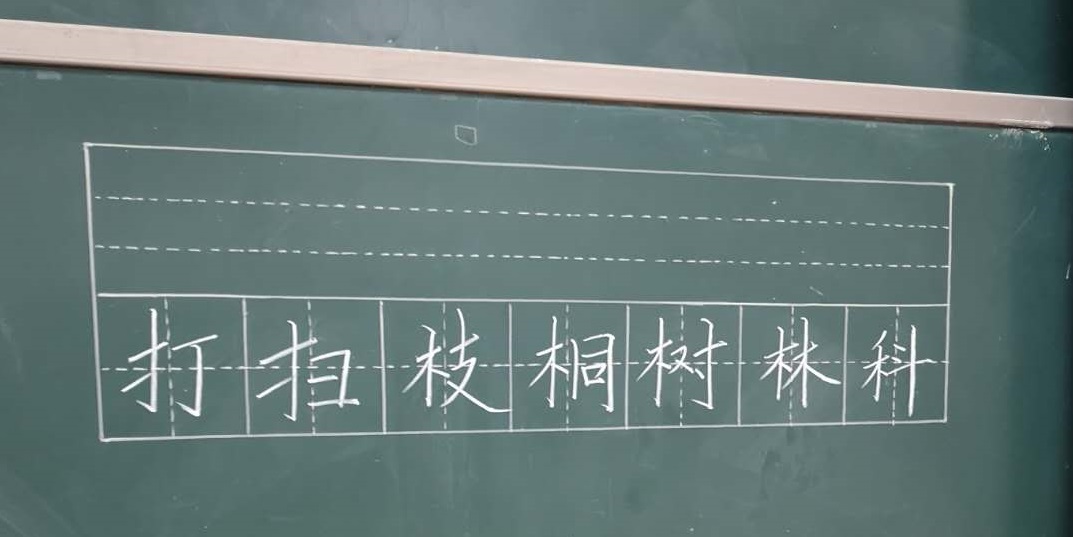 打扫枝桐树林科